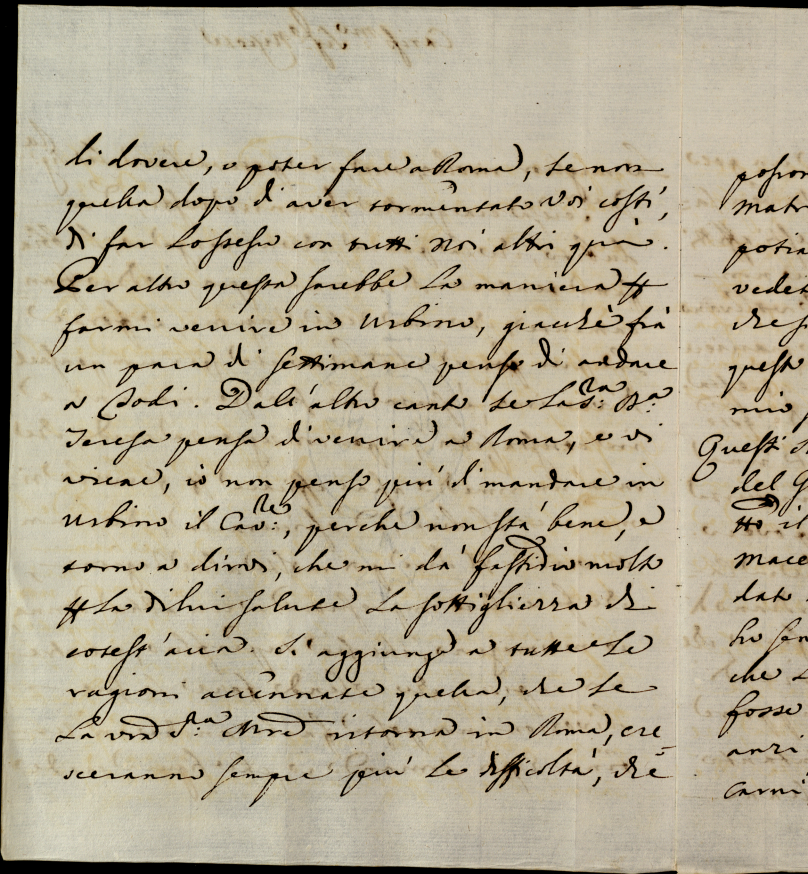 di dovere, o poter fare a Roma, se non
quella dopo di aver tormentato Voi costì,
di far lo stesso con tutti Noi altri quà.
Per altro questa sarebbe la maniera
farmi venire in Urbino, giacchè frà
un para di settimane penso di andare
a Todi. Dall'altro canto se la S:ra D:a
Teresa pensa di venire a Roma, e vi
viene, io non penso più di mandare in
Urbino il Cav:re, perche non stà bene, e
torno a dirvi, che mi dà fastidio molto
la di lui salute la sottigliezza di
cotest'aria. Si aggiunge a tutte le
ragioni accennate quella, che se
la vrã S:ra Mrẽ ritorna in Roma, cre=
sceranno sempre più le difficoltà, che
matr
potia
vedet
che s
questo
mio
Questi
del
tto il
mace
dato
ho sen
che
fosse
anzi
carni